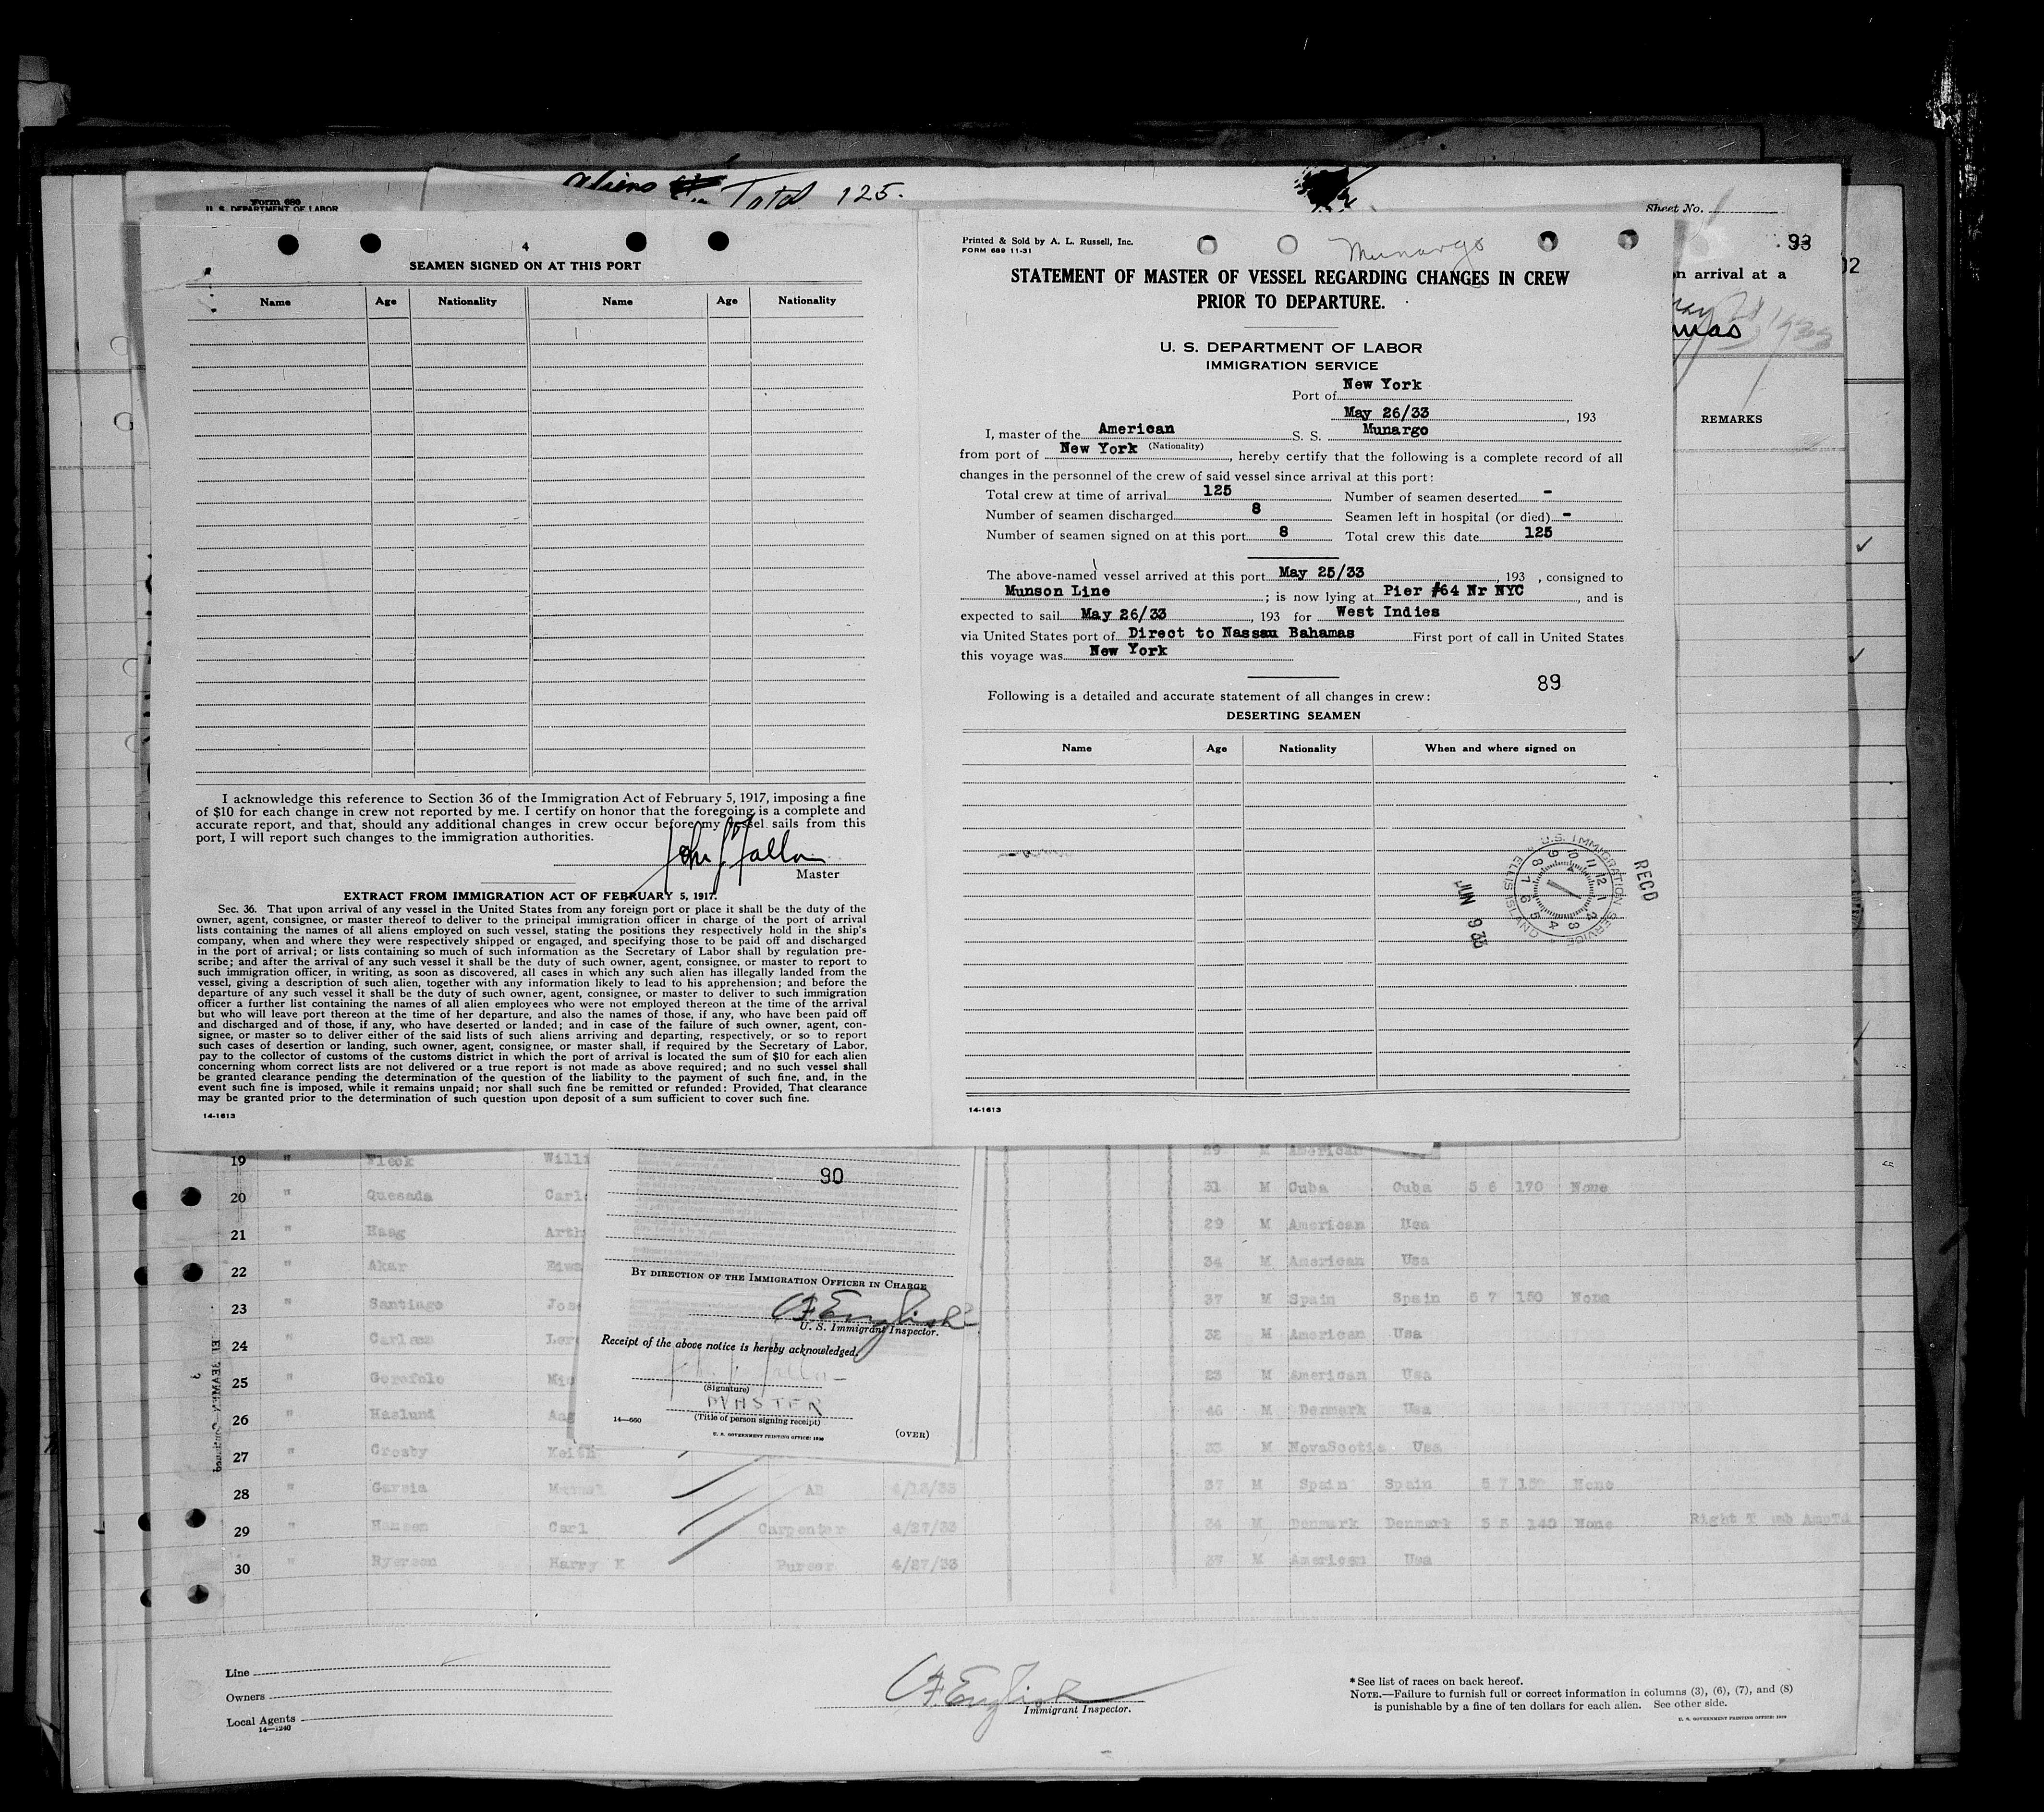 Aliens Total 125.
Form 680
U. S. DEPARTMENT OF LABOR
Sheet No.
4
SEAMEN SIGNED ON AT THIS PORT
Name Age Nationality Name Age Nationality
I acknowledge this reference to Section 36 of the Immigration Act of February 5, 1917, imposing a fine
of $10 for each change in crew not reported by me. I certify on honor that the foregoing is a complete and
accurate report, and that, should any additional changes in crew occur before my vessel sails from this
port, I will report such changes to the immigration authorities.
Master
EXTRACT FROM IMMIGRATION ACT OF FEBRUARY 5, 1917.
Sec. 36. That upon arrival of any vessel in the United States from any foreign port or place it shall be the duty of the
owner, agent, consignee, or master thereof to deliver to the principal immigration officer in charge of the port of arrival
lists containing the names of all aliens employed on such vessel, stating the positions they respectively hold in the ship's
company, when and where they were respectively shipped or engaged, and specifying those to be paid off and discharged
in the port of arrival; or lists containing so much of such information as the Secretary of Labor shall by regulation pre-
scribe; and after the arrival of any such vessel it shall be the duty of such owner, agent, consignee, or master to report to
such immigration officer, in writing, as soon as discovered, all cases in which any such alien has illegally landed from the
vessel, giving a description of such alien, together with any information likely to lead to his apprehension; and before the
departure of any such vessel it shall be the duty of such owner, agent, consignee, or master to deliver to such immigration
officer a further list containing the names of all alien employees who were not employed thereon at the time of the arrival
but who will leave port thereon at the time of her departure, and also the names of those, if any, who have been paid off
and discharged and of those, if any, who have deserted or landed; and in case of the failure of such owner, agent, con-
signee, or master so to deliver either of the said lists of such aliens arriving and departing, respectively, or so to report
such cases of desertion or landing, such owner, agent, consignee, or master shall, if required by the Secretary of Labor,
pay to the collector of customs of the customs district in which the port of arrival is located the sum of $10 for each alien
concerning whom correct lists are not delivered or a true report is not made as above required; and no such vessel shall
be granted clearance pending the determination of the question of the liability to the payment of such fine, and, in the
event such fine is imposed, while it remains unpaid; nor shall such fine be remitted or refunded: Provided, That clearance
may be granted prior to the determination of such question upon deposit of a sum sufficient to cover such fine.
14-1613
Printed & Sold by A. L. Russell, Inc.
FORM 689 11-31
Munargo
STATEMENT OF MASTER OF VESSEL REGARDING CHANGES IN CREW
PRIOR TO DEPARTURE.
U. S. DEPARTMENT OF LABOR
IMMIGRATION SERVICE
Port of New York
May 26/33, 193
I, master of the American S. S. Munargo
(Nationality)
from port of New York, hereby certify that the following is a complete record of all
changes in the personnel of the crew of said vessel since arrival at this port:
Total crew at time of arrival 125 Number of seamen deserted -
Number of seamen discharged 8 Seamen left in hospital (or died) -
Number of seamen signed on at this port 8 Total crew this date 125
The above-named vessel arrived at this port May 25/33, 193 , consigned to
Munson Line; is now lying at Pier #64 Nr NYC, and is
expected to sail May 26/33, 193 for West Indies
via United States port of Direct to Nassau Bahamas First port of call in United States
this voyage was New York
89
Following is a detailed and accurate statement of all changes in crew:
DESERTING SEAMEN
Name Age Nationality When and where signed on
U.S. IMMIGRATION SERVICE ELLIS ISLAND
RECD
JUN 9 33
14-1613
93
n arrival at a
REMARKS
19 " Fleck Willi 29 M American
20 " Quesada Carl 31 M Cuba Cuba 5 6 170 None
21 " Haag Arth 29 M American Usa
22 " Akar Edwa 34 M American Usa
23 " Santiago Jose 37 M Spain Spain 5 7 150 None
24 " Carlson 32 M American Usa
25 " 23 M American Usa
26 " Haslund Aug 46 M Denmark Usa
27 " Crosby Keith 33 M NovaScotia Usa
28 " Garcia Manuel AB 4/13/33 37 M Spain Spain 5 7 150 None
29 " Hansen Carl Carpenter 4/27/33 34 M Denmark Denmark 5 5 140 None Right T mb AmpTd
30 " Ryerson Harry K Purser 4/27/33 37 M American Usa
90
BY DIRECTION OF THE IMMIGRATION OFFICER IN CHARGE
U. S. Immigrant Inspector.
Receipt of the above notice is hereby acknowledged.
(Signature)
MASTER
(Title of person signing receipt)
14—660
U. S. GOVERNMENT PRINTING OFFICE
(OVER)
Line
Owners
Local Agents
14—1240
Immigrant Inspector.
* See list of races on back hereof.
NOTE.—Failure to furnish full or correct information in columns (3), (6), (7), and (8)
is punishable by a fine of ten dollars for each alien. See other side.
U. S. GOVERNMENT PRINTING OFFICE